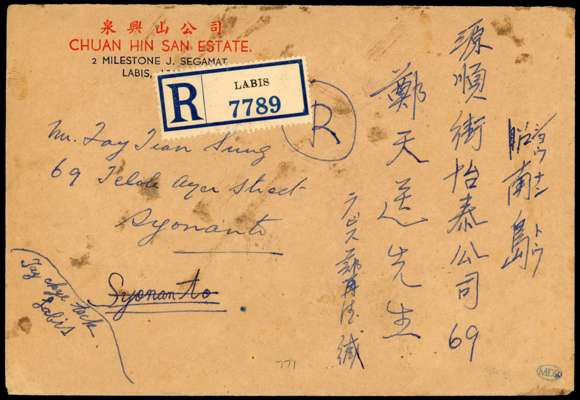 泉興山公司
CHUAN HIN SAN ESTATE.
2 MILESTONE J. SEGAMAT
LABIS,
R LABIS
7789
R
Mr. Tay Tian Sung
69 Telok Ayer Street
Syonanto
Syonanto
Tay chye teck
Labis
昭南島
ショウナントウ
源順街怡泰公司69
鄭天送先生
ラビス
緘
777